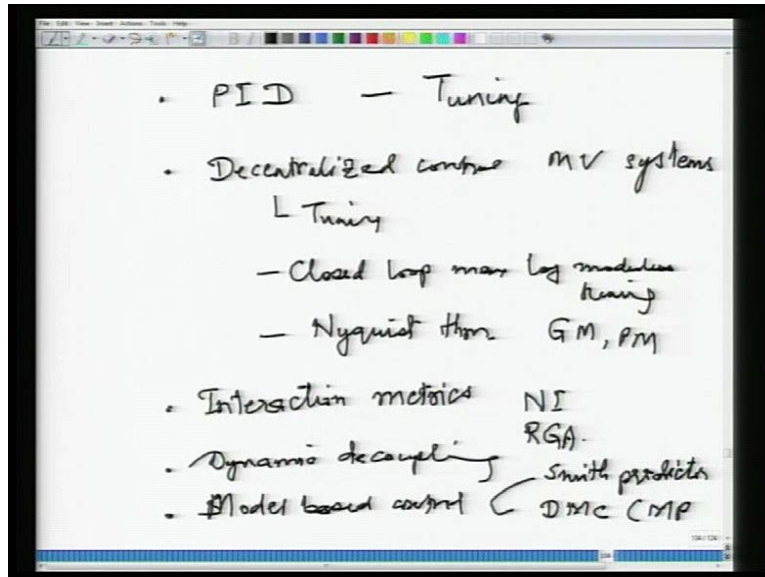 File Edit View Insert Actions Tools Help
B I
• PID — Tuning
• Decentralized control MV systems
Tuning
— Closed loop max log modulus
tuning
— Nyquist thm. GM, PM
• Interaction metrics NI
RGA.
• Dynamic decoupling
Smith predictor
• Model based control DMC CMP
104/104
104